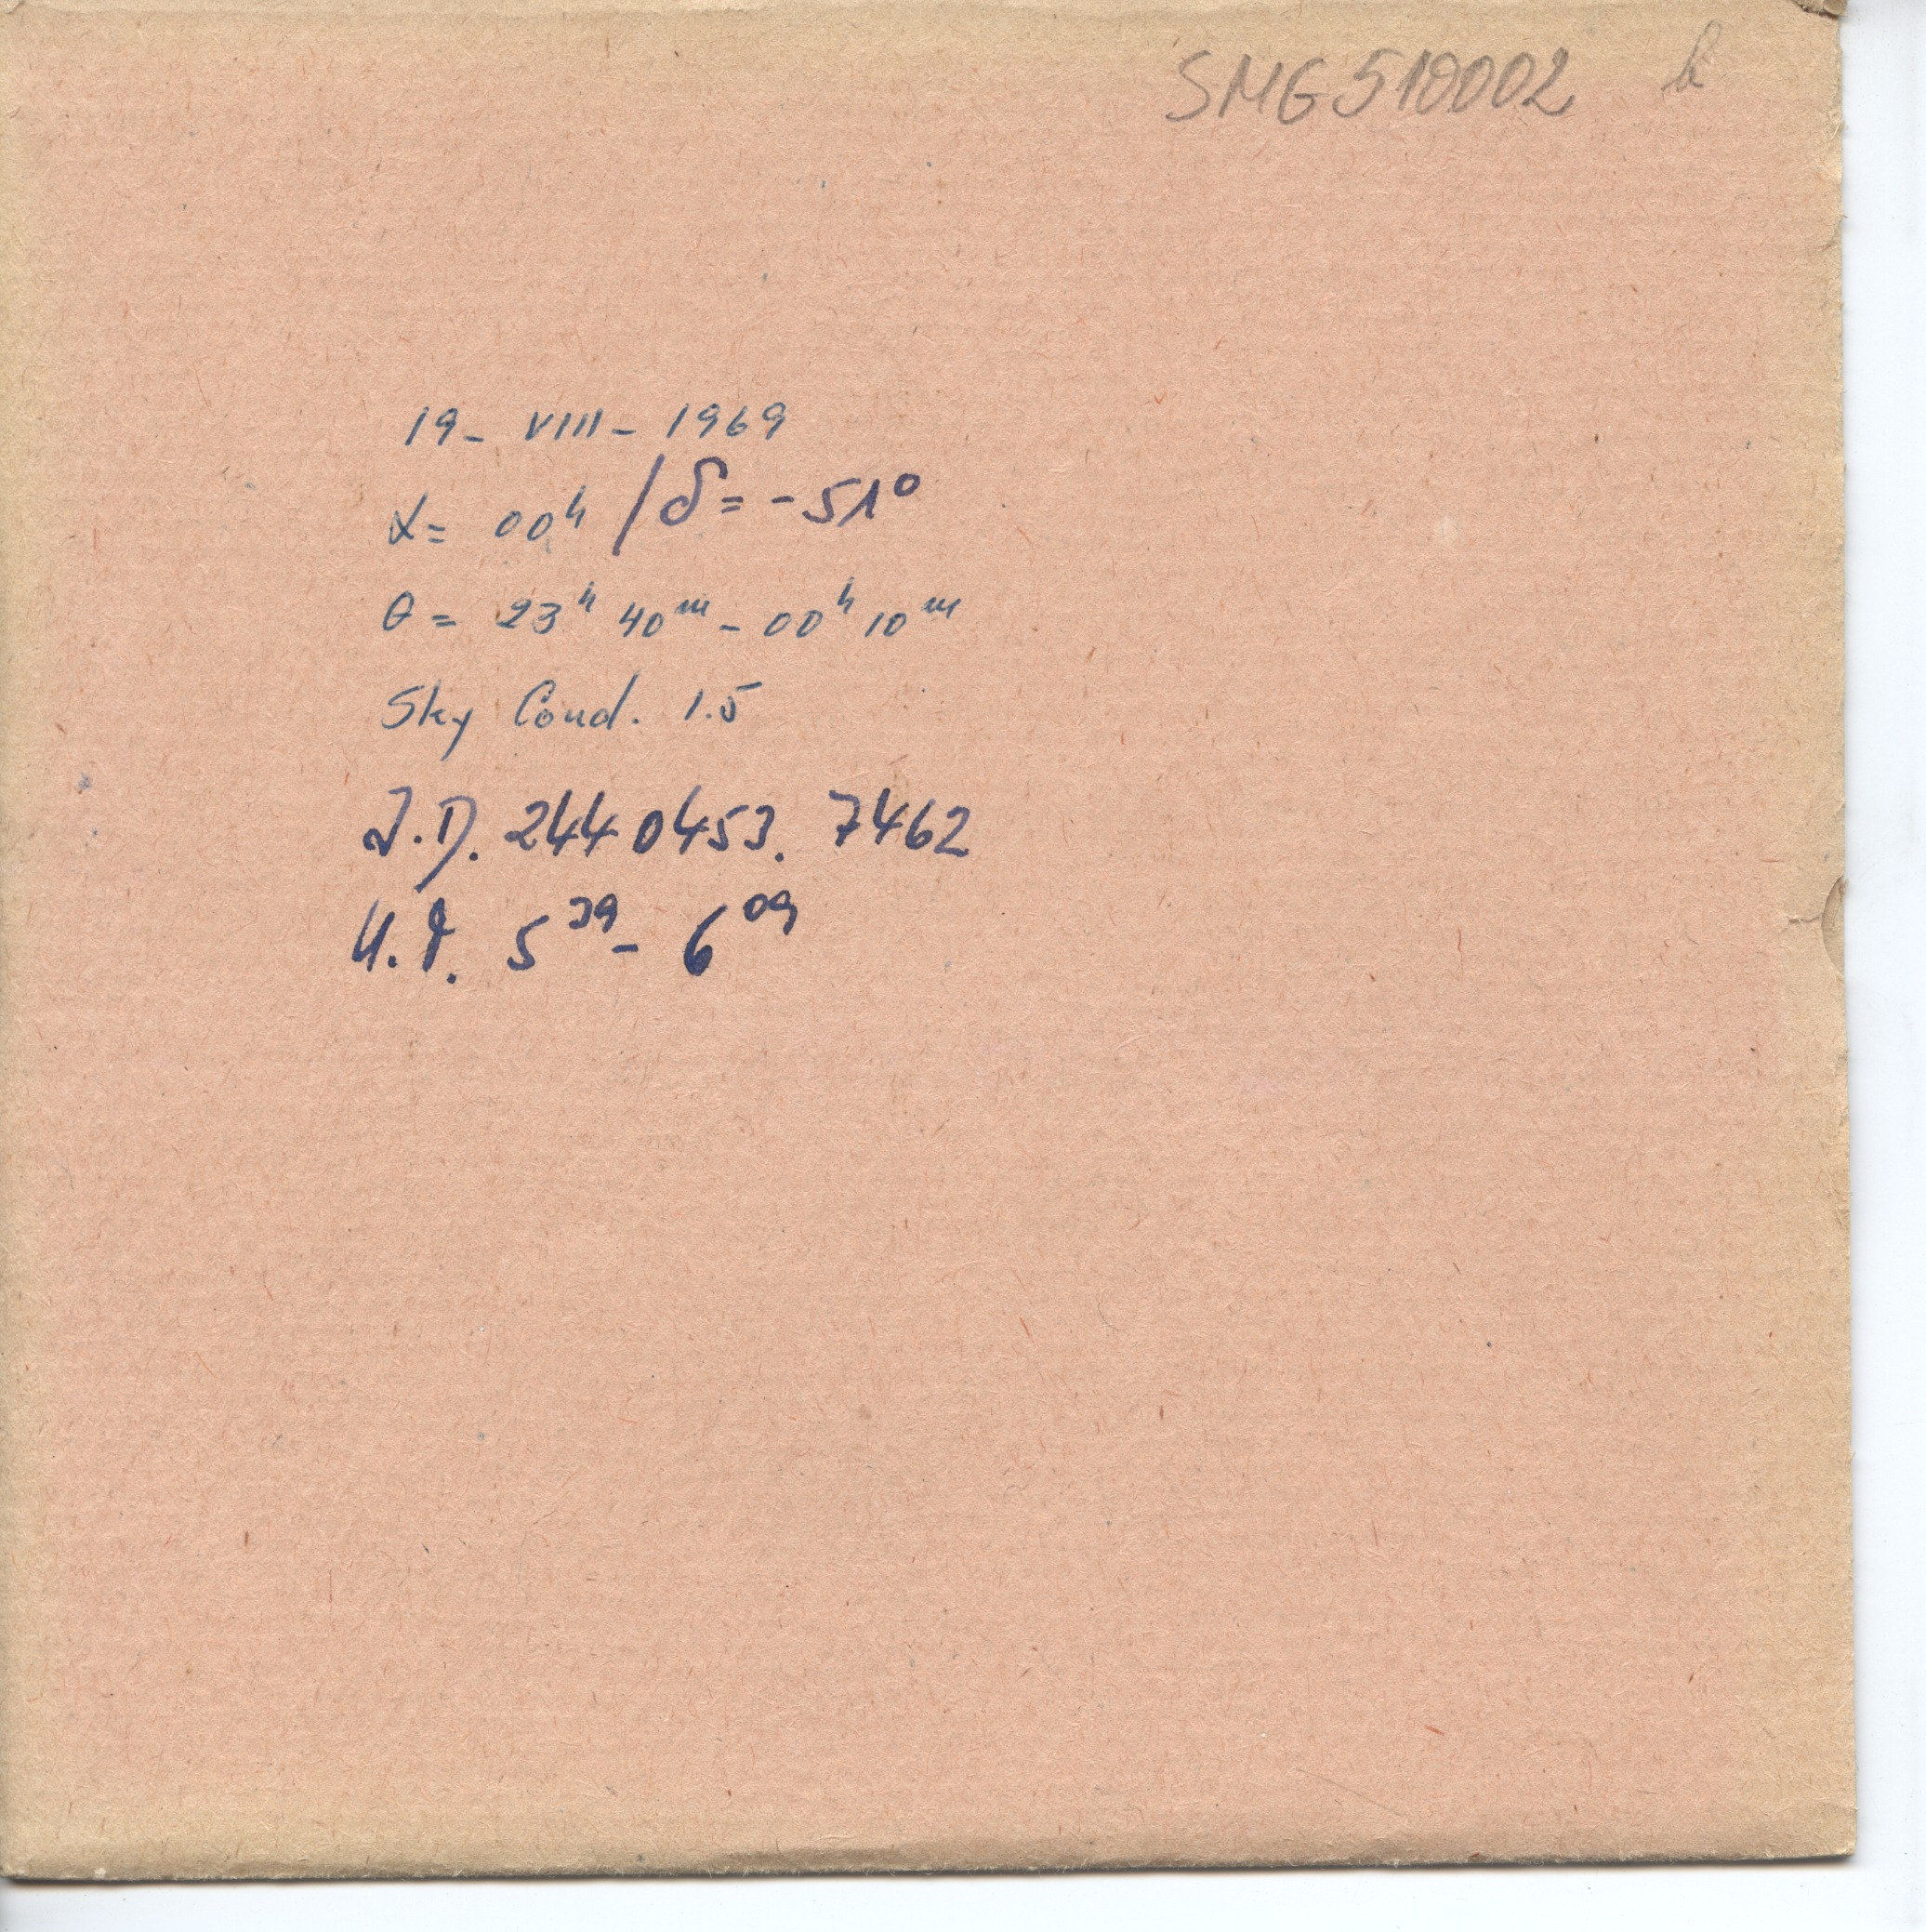 SMG510002 b
19- VIII - 1969
α = 00ʰ / δ = -51°
θ = 23ʰ 40ᵐ - 00ʰ 10ᵐ
Sky Cond. 1.5
J.D. 2440453. 7462
U.T. 5³⁹ - 6⁰⁹